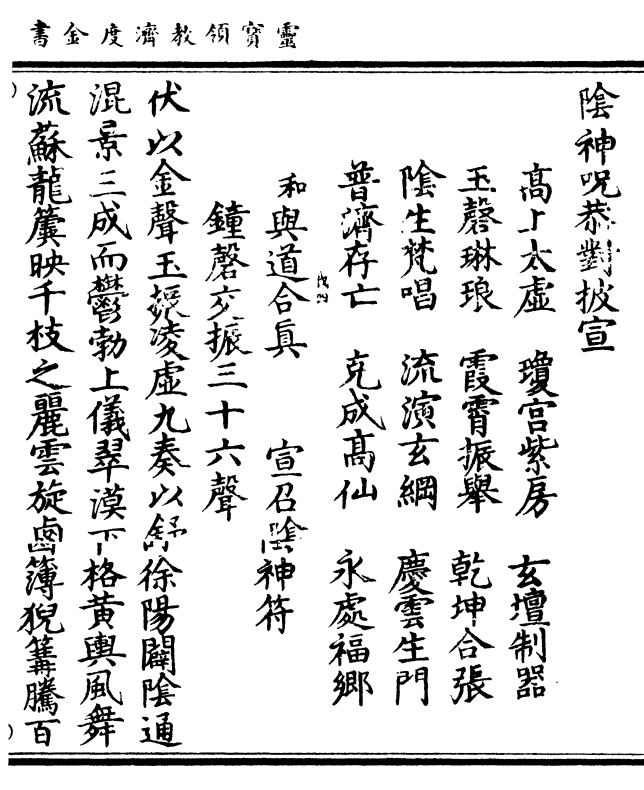 靈寶領教濟度金書
陰神呪恭對披宣
高上太虛 瓊宮紫房 玄壇制器
玉磬琳琅 霞霄振舉 乾坤合張
陰生梵唱 流演玄綱 慶雲生門
普濟存亡 克成高仙 永處福鄉
和與道合真 宣召陰神符
鐘磬交振三十六聲
伏以金聲玉凌虛九奏以舒徐陽闢陰通
混景三成而鬱勃上儀翠漠下格黃輿風舞
流蘇龍簴映千枝之麗雲旋鹵簿猊篝騰百